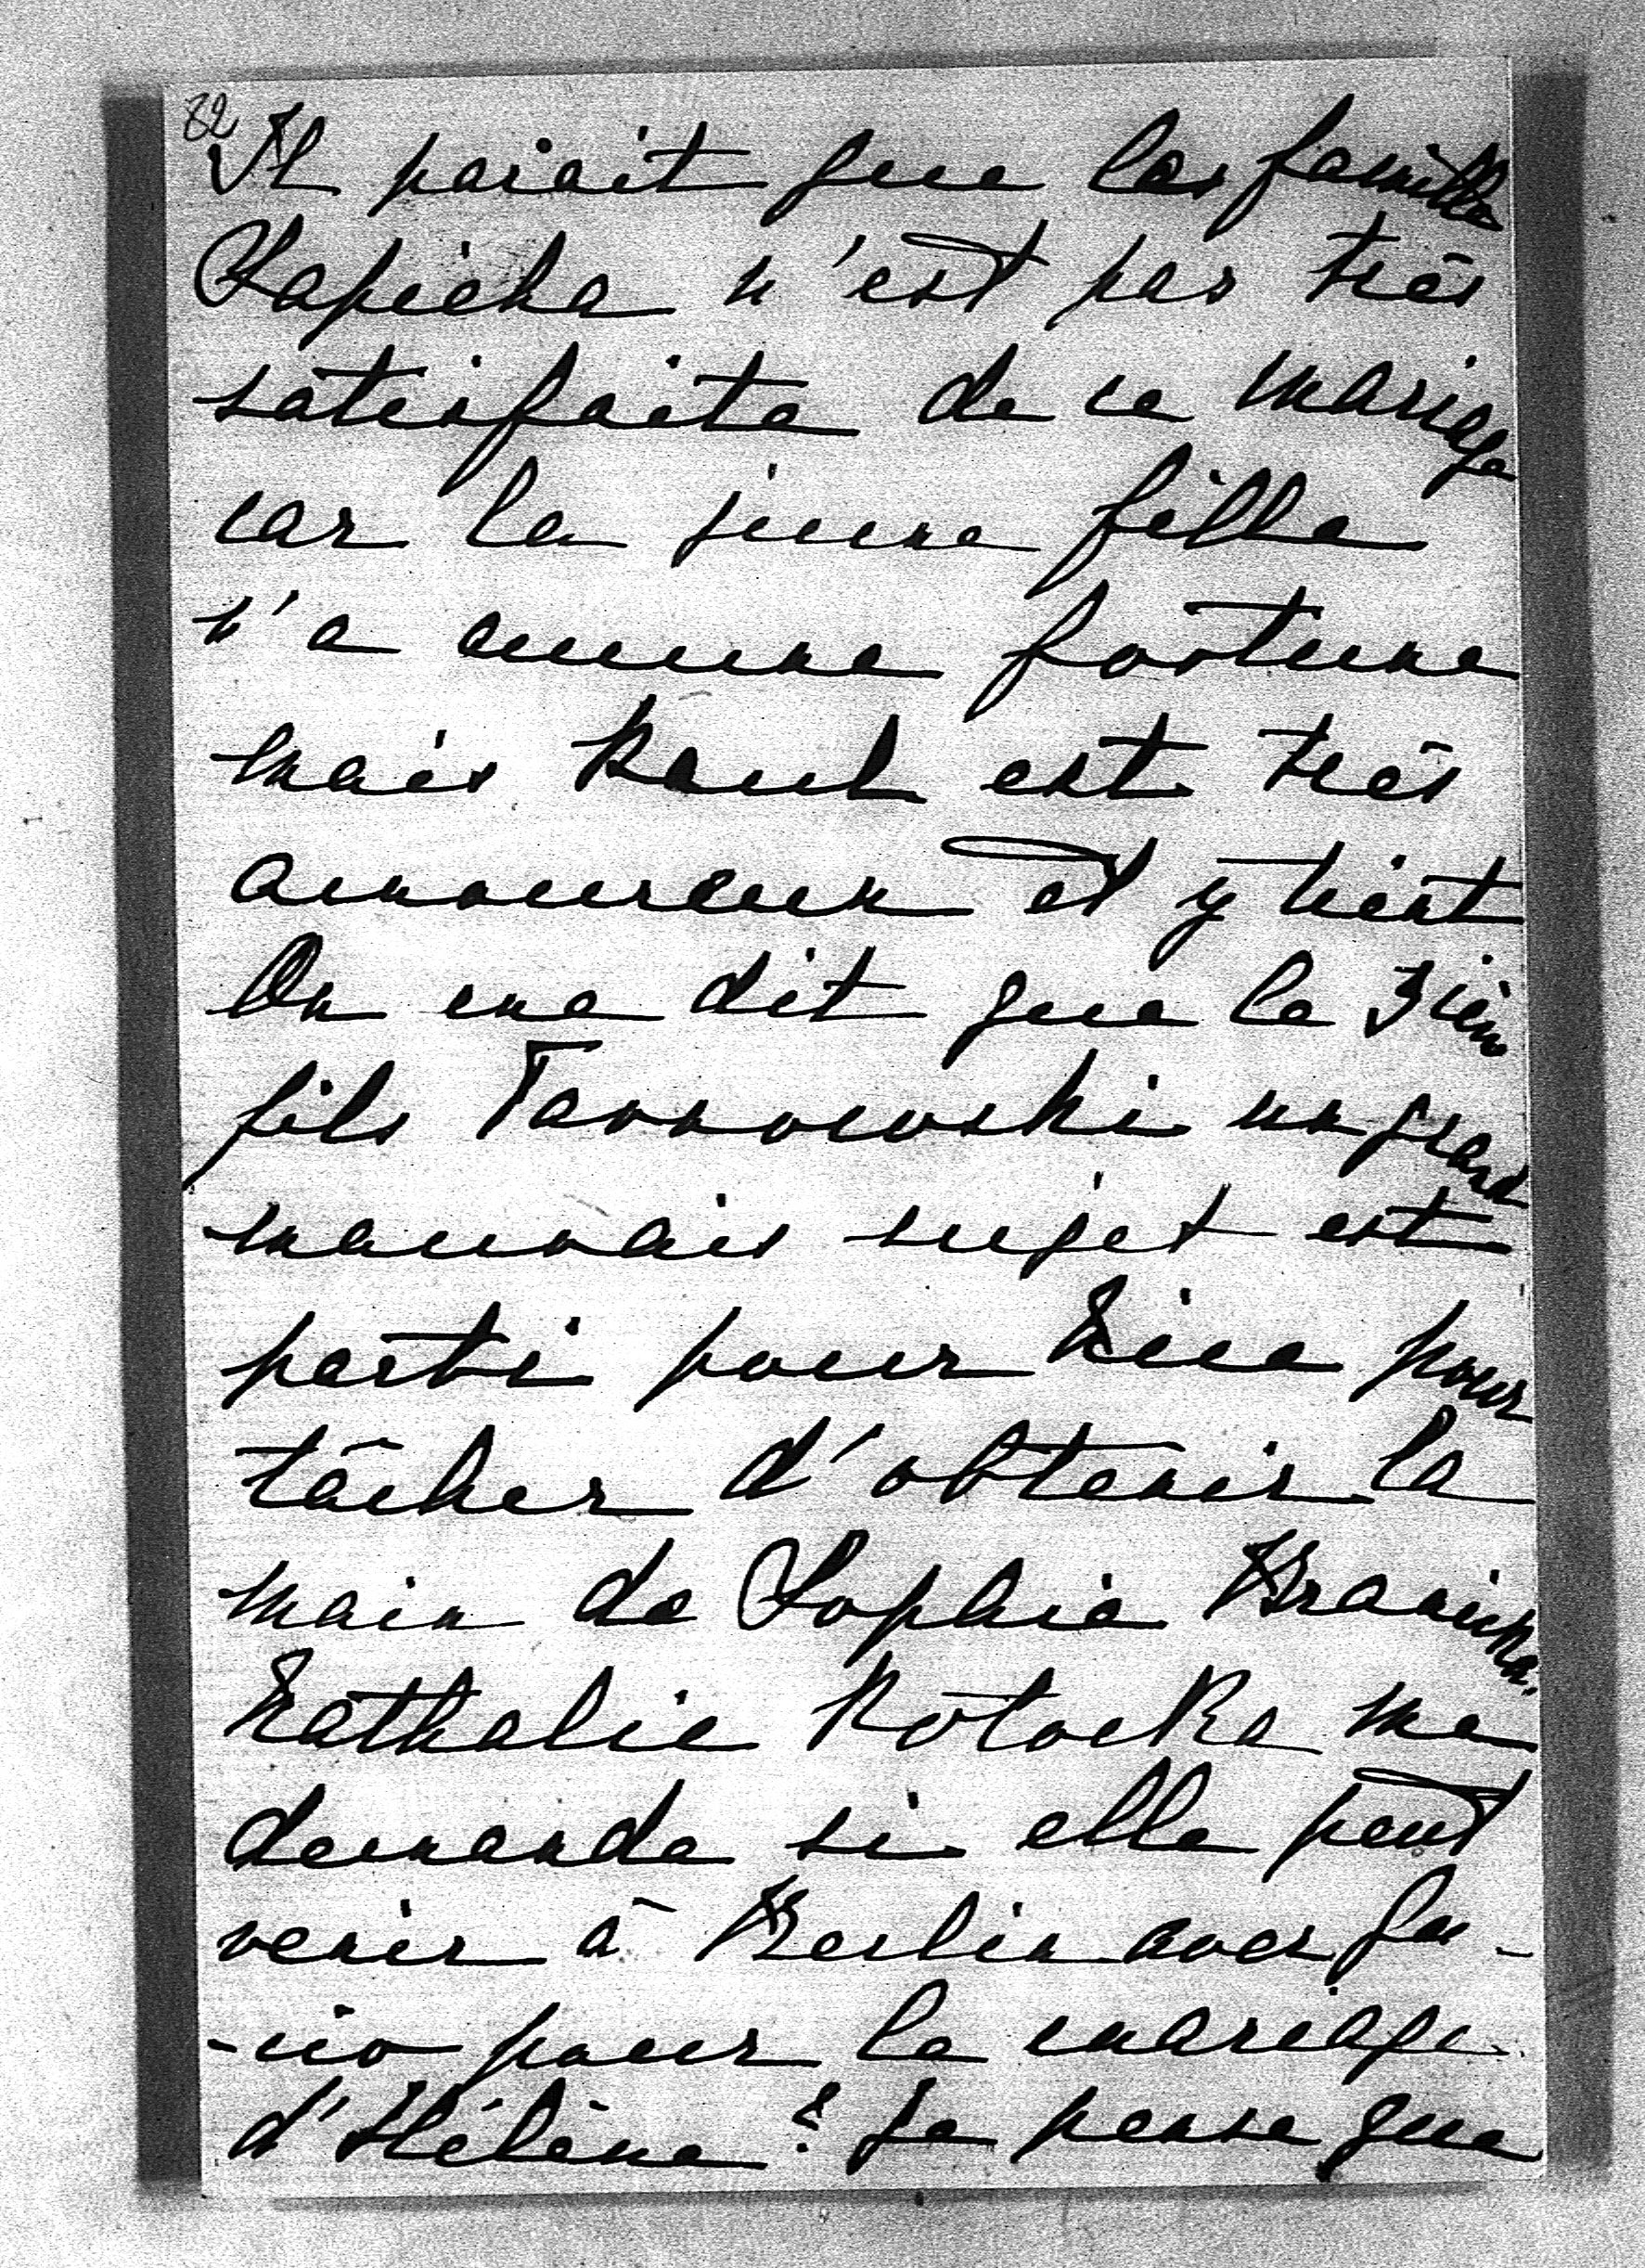 82
Il parait que la famille
Sapieha n'est pas très
satisfaite de ce mariage
car la jeune fille
n'a aucune fortune
mais Paul est très
amoureux et y tient
On me dit que le 3ièm
fils Tarnowski un grand
mauvais sujet est
parti pour Nice pour
tâcher d'obtenir la
main de Sophie Branicka.
Nathalie Potocka me
demande si elle peut
venir à Berlin avec
pour le mariage
d'Hélène? Je pense que